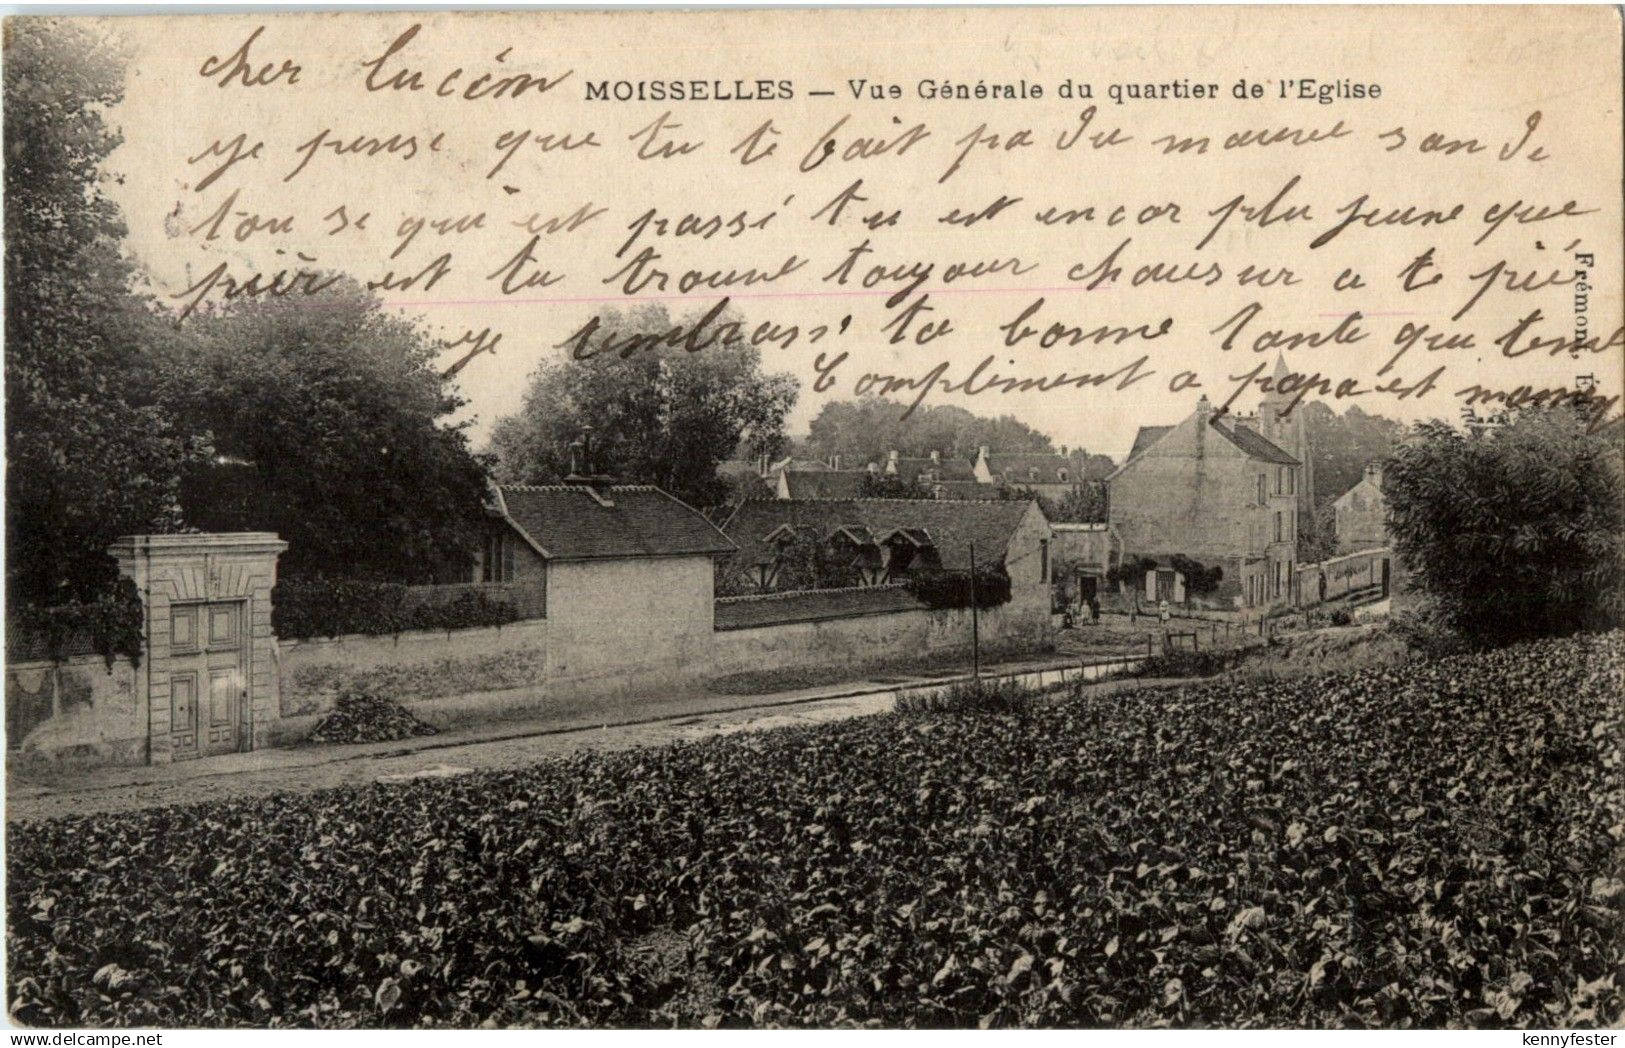 cher Lucién
MOISSELLES — Vue Générale du quartier de l'Eglise
Je pense que tu te fait pa du mauve san de
tou se qui est passé tu est encor plu jeune que
pièr est tu trouve toujour chausur a te pié
Je tembrass ta bonne tante qui teme
Compliment a papa et maman
Frémont, E
kennyfester